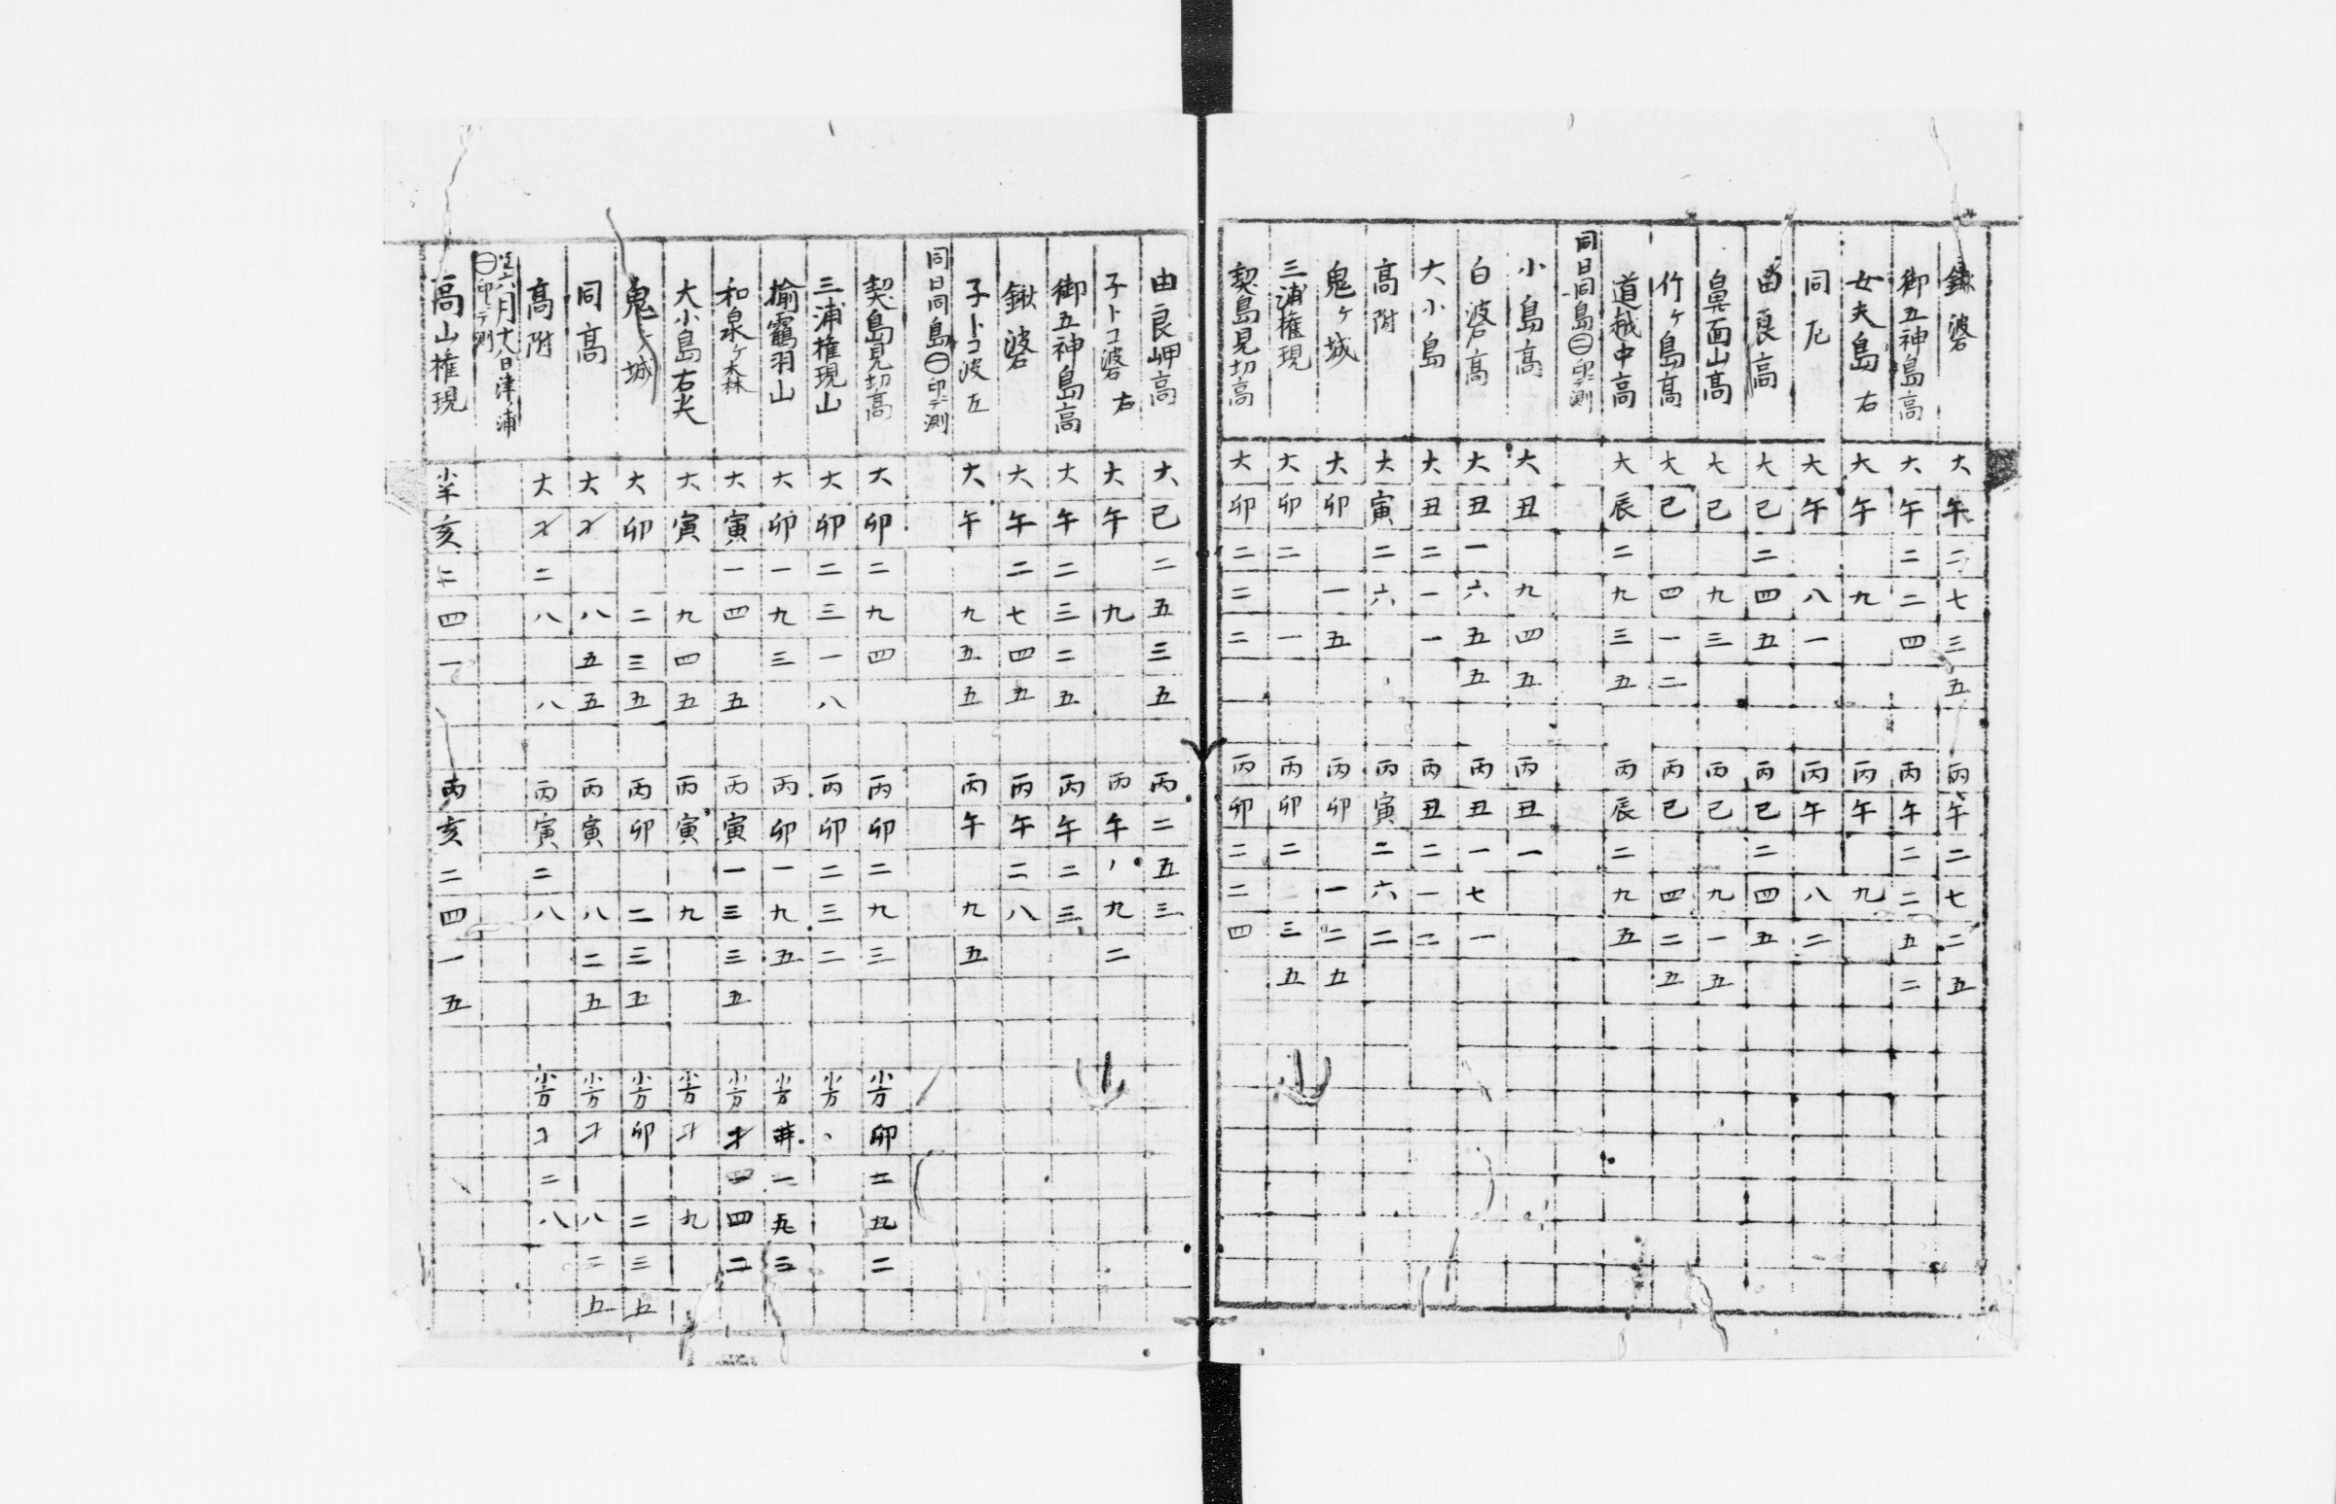 鍬碆 大午二七三五 丙午二七二五
御五神島高 大午二二四 丙午二二五二
女夫島右 大午九 丙午九
同 大午八一 丙午八二
由良高 大巳二四五 丙巳二四五
鼻面山高 大巳九三 丙巳九一五
竹ヶ島高 大巳四一二 丙巳四二五
道越中高 大辰二九三五 丙辰二九五
同日同島㊁印ニテ測
小島高 大丑九四五 丙丑一
白碆高 大丑一六五五 丙丑一七一
大小島 大丑二一一 丙丑二一二
高附 大寅二六 丙寅二六二
鬼ヶ城 大卯一五 丙卯一二五
三浦権現 大卯二一 丙卯二三五
契島見切高 大卯二三二 丙卯二二四
由良岬高 大巳二五三五 丙二五三
子トコ碆右 大午九 丙午九二
御五神島高 大午二三二五 丙午二三
鍬碆 大午二七四五 丙午二八
子トコ波左 大午九五五 丙午九五
同日同島㊀印ニテ測
契島見切高 大卯二九四 丙卯二九三 小方卯二九二
三浦権現山 大卯二三一八 丙卯二三二 小方、
揄靏羽山 大卯一九三 丙卯一九五 小方 一九二
和泉ヶ森 大寅一四五 丙寅一三三五 小方才一四二
大小島右尖 大寅九四五 丙寅九 小方才九
鬼ヶ城 大卯二三五 丙卯二三五 小方卯二三五
同高 大才八五五 丙寅八二五 小方才八二五
高附 大才二八八 丙寅二八 小方才二八
六月十八日津ノ浦㊀印ニテ測
高山権現 小羊亥二四一 丙亥二四一五